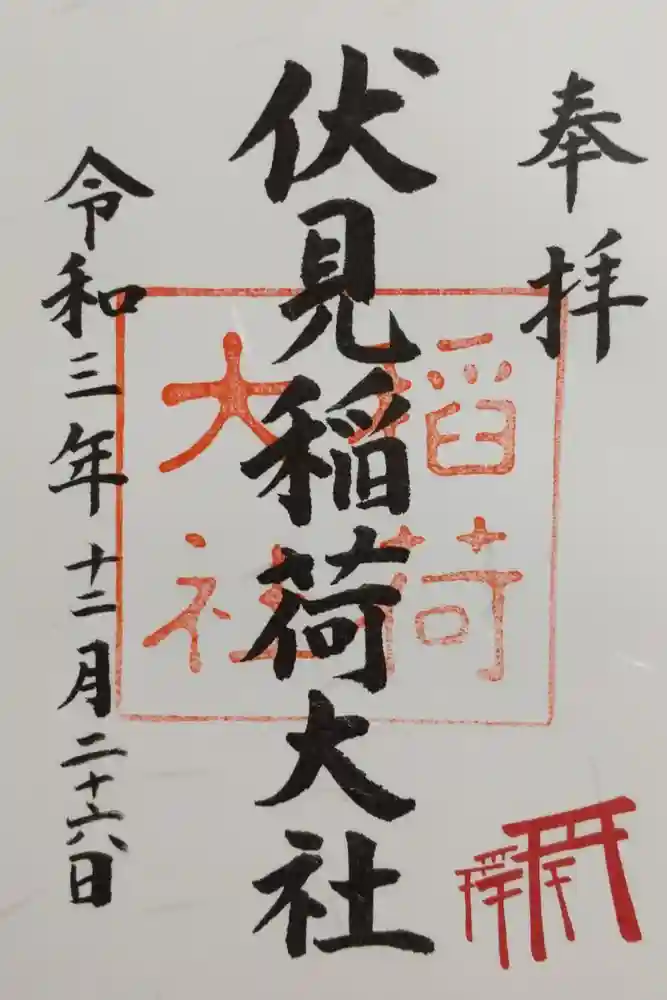 奉拝
伏見稲荷大社
稲荷
大社
令和三年十二月二十六日